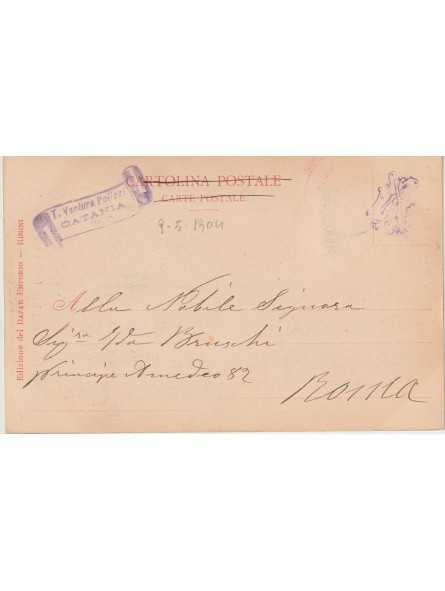 CARTOLINA POSTALE
CARTE POSTALE
T. Ventura
CATANIA
9-5-1904
Edizione del BAZAR EMPORIO — RIMINI
Alla Nobile Signora
Sig.ra Ida Bruschi
Principe Amedeo 82
ROMA